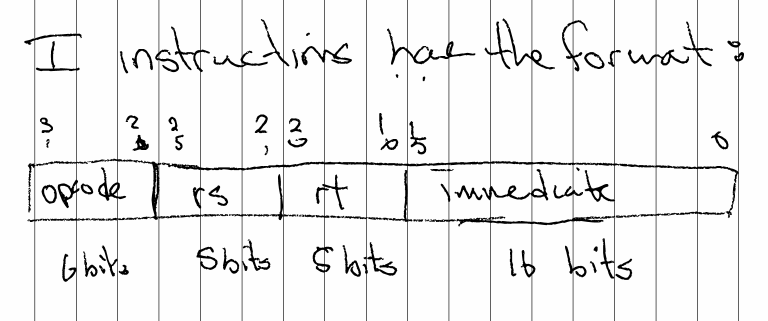 I instructions have the format:
31 26 25 21 20 16 15 0
opcode rs rt immediate
6 bits 5 bits 5 bits 16 bits